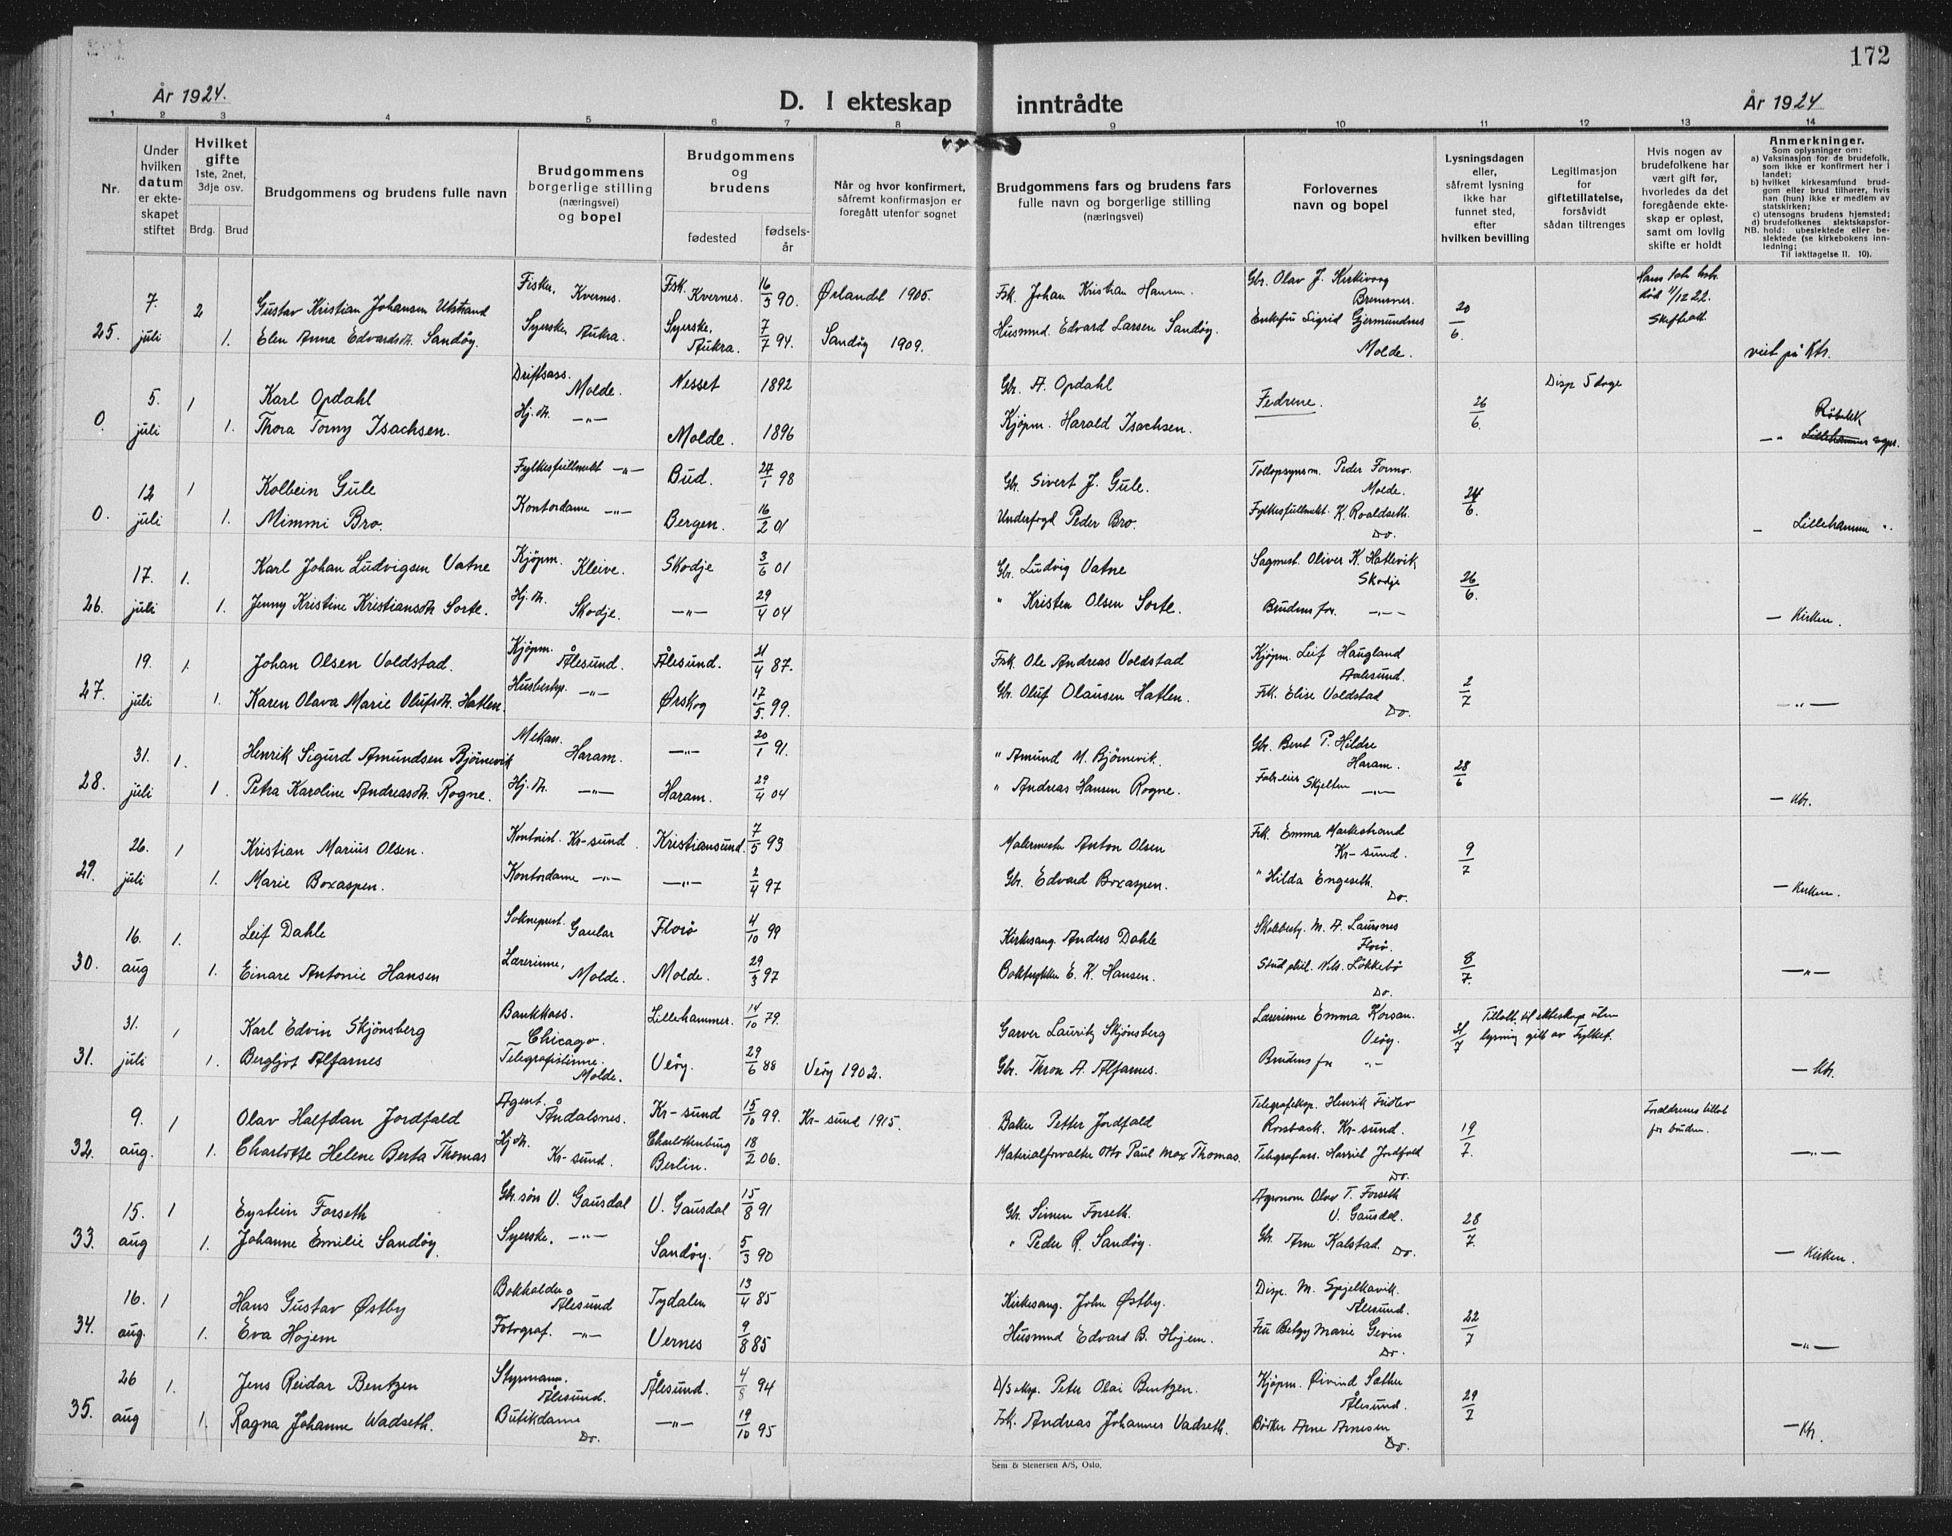 172
År 1924.
D. I ekteskap inntrådte
År 1924
1 2 3 4 5 6 7 8 9 10 11 12 13 14
Nr.
Under hvilken datum er ekteskapet stiftet
Hvilket gifte
1ste, 2net, 3dje osv.
Brdg. Brud
Brudgommens og brudens fulle navn
Brudgommens borgerlige stilling (næringsvei) og bopel
Brudgommens og brudens
fødested
fødselsår
Når og hvor konfirmert, såfremt konfirmasjon er foregått utenfor sognet
Brudgommens fars og brudens fars fulle navn og borgerlige stilling (næringsvei)
Forlovernes navn og bopel
Lysningsdagen eller, såfremt lysning ikke har funnet sted, efter hvilken bevilling
Legitimasjon for giftetillatelse, forsåvidt sådan tiltrenges
Hvis nogen av brudefolkene har vært gift før, hvorledes da det foregående ekteskap er opløst, samt om lovlig skifte er holdt
Anmerkninger.
Som oplysninger om:
a) Vaksinasjon for de brudefolk, som ikke er konfirmert her i landet;
b) hvilket kirkesamfund brudgom eller brud tilhører, hvis han (hun) ikke er medlem av statskirken;
c) utensogns brudens hjemsted;
d) brudefolkenes slektskapsforhold: ubeslektede eller beslektede (se kirkebokens innledning;
NB.
Til iakttagelse II. 10).
7. 2 Gustav Kristian Johansen Utstrand Fisker, Kvernes. Fsk. Kvernes. 16/5 90 Ørlandet 1905. Fsk. Johan Kristian Hansen. Gbr. Olav J. Kirkivoog Bremsnes. død 11/12 22.
25. juli 1. Elen Anna Edvardsdt. Sandøy. Syerske, Aukra. Syerske, Aukra. 7/7 94. Sandøy 1909. Husmnd. Edvard Larsen Sandøy. Enkefru Sigrid Gjermundnes Molde. 20/6. viet på Ktr.
5. 1 Karl Opdahl Driftsass. Molde. Nesset 1892 Gbr. A. Opdahl Fedrene. 26/6. Disp 5 dage
0. juli 1. Thora Torny Isachsen. Hj.dt. —„— Molde. 1896 Kjøpm. Harald Isachsen. —„ Røbekk Lillehammer
12 1 Kolbein Gule Fylkesfullmekt —„— Bud. 27/1 98 Gbr. Sivert J. Gule. Tollopsynsm. Peder Formo Molde. 24/6.
0. juli 1. Mimmi Bro. Kontordame —„— Bergen. 16/2 01 Underfogd Peder Bro. Fylkesfullmekt. K. Roaldseth. Do. — Lillehammer „
17. 1. Karl Johan Ludvigsen Vatne Kjøpm. Kleive. Skodje 3/6 01 Gbr. Ludvig Vatne Sagmest. Oliver K. Hatlevik Skodje 26/6.
26. juli 1. Jenny Kristine Kristiansdt. Sorte. Hj.dt. Skodje. —„— 29/4 04 " Kristen Olsen Sorte. Brudens far. —„— — Kirken.
19. 1. Johan Olsen Voldstad. Kjøpm. Ålesund. Ålesund. 21/4 87. Fsk. Ole Andreas Voldstad Kjøpm. Leif Haugland Aalesund. 2/7
27. juli 1. Karen Olava Marie Olufsdt. Hatlen. Husbestyr. —„— Ørskog 17/5. 99. Gbr. Oluf Olausen Hatlen. Frk. Elise Voldstad Do. —„—
31. 1. Henrik Sigurd Amundsen Bjørnevik Mekan. Haram. —„— 20/1 91. " Amund M. Bjørnevik. Gbr. Bent P. Hildre Haram. 28/6
28. juli 1. Petra Karoline Andreasdt. Rogne. Hj.dt. —„— Haram. 29/4 04 " Andreas Hansen Rogne. Skjelten —„— — Ktr.
26. 1 Kristian Marius Olsen. Kontorist. Kr-sund. Kristiansund. 7/5 93 Malermestr Anton Olsen Frk. Emma Markestrand Kr-sund. 9/7
29. juli 1. Marie Boxaspen. Kontordame —„— —„— 2/4 97 Gbr. Edvard Boxaspen. " Hilda Engeseth. Do. — Kirken.
16. 1. Leif Dahle Sokneprest. Gaular Florø 4/10 99 Kirkesang. Anders Dahle Skolebesty. M. A. Laursnes Florø. 8/7.
30. aug 1. Einare Antonie Hansen Lærerinne, Molde. Molde. 29/3 97 Boktrykker E. K. Hansen. Stud. phil. Nils Løkkebø Do. —„—
31. 1 Karl Edvin Skjønsberg Bankkass. Chicago. Lillehammer. 14/10 79. Garver Lauritz Skjønsberg Lærerinne Emma Korsan. Veøy. 31/7 Tillatt. til ekteskap uten lysning gitt av Fylket.
31. juli 1. Bergljot Alfarnes Telegrafistinne. Molde. Veøy. 29/6 88 Veøy 1902. Gbr. Thron A. Alfarnes. Brudens far —„— — Ktr.
9. 1 Olav Halfdan Jordfald Agent. Åndalsnes. Kr-sund 15/10 99. Kr-sund 1915. Baker Petter Jordfald Telegrafeksp. Henrik Fridlev Rosback. Kr-sund. 19/7. Foreldrenes tillat for bruden.
32. aug. 1. Charlotte Helene Berta Thomas Hj.dt. Kr-sund. Charlottenburg Berlin. 18/2 06. Materialforvalter Otto Paul Max Thomas. Telegrafass. Harriet Jordfald Do. —„—
15. 1 Eystein Forseth Gbr.søn V. Gausdal V. Gausdal 15/8 91 Gbr. Simen Forseth. Agronom Olav T. Forseth V. Gausdal. 28/7.
33. aug 1. Johanne Emilie Sandøy. Syerske. —„— Sandøy. 5/3 90 " Peder R. Sandøy. Gbr. Arne Kalstad. Do. — Kirken.
16. 1 Hans Gustav Østby Bokholder Ålesund Tydalen 13/4 85 Kirkesang. John Østby. Disp. M. Spjelkavik. Ålesund. 22/7
34. aug. 1. Eva Hojem Fotograf. —„— Vernes 9/8 85 Husmnd Edvard B. Hojem. Fru Betzy Marie Gevin Do. —„—
26 1. Jens Reidar Bentzen Styrmann. Ålesund. Ålesund. 4/8 94 D/S eksp. Peter Olai Bentzen. Kjøpm. Øivind Sæther Ålesund. 29/7
35. aug 1. Ragna Johanne Wadseth. Butikdame Do. —„— 19/10 95 Fsk. Andreas Johannes Vadseth. Bødker Arne Arnesen Do. — Ktr.
Sem & Stenersen A/S, Oslo.